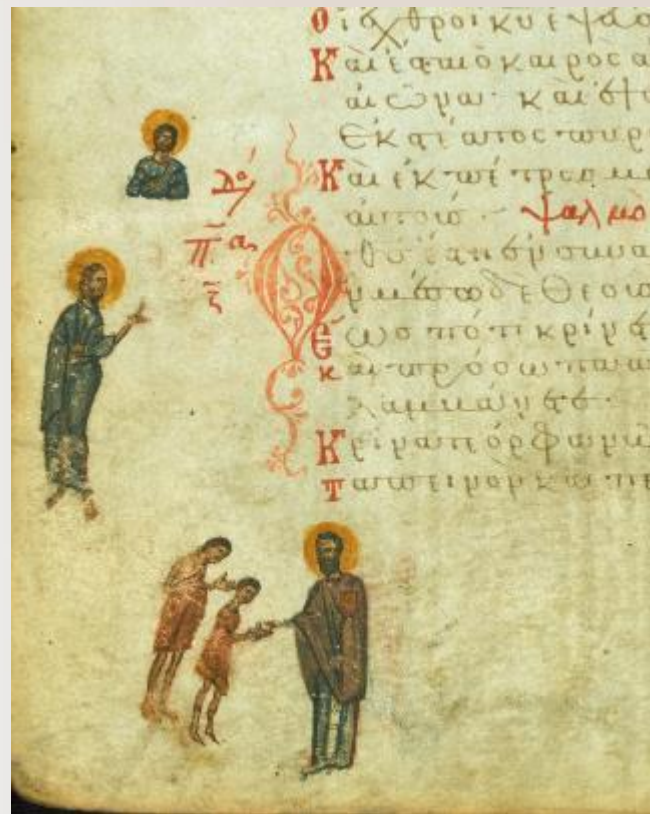 Οἱ ἐχθροὶ κυ ἐψεύ
Καὶ ἔσται ὁ καιρὸς α
αἰῶνα· καὶ ἐψώ
Ἐκ στέατος πυρ
Καὶ ἐκ πέτρας με
αὐτούς· ψαλμὸ
πα
Ὁ θς ἔστη ἐν συνα
μέσω δὲ θεοὺ
Ἕως πότε κρίνε
Καὶ πρόσωπα
λαμβάνετε·
Κρίνατε ὀρφανῶ
Ταπεινὸν καὶ πέ